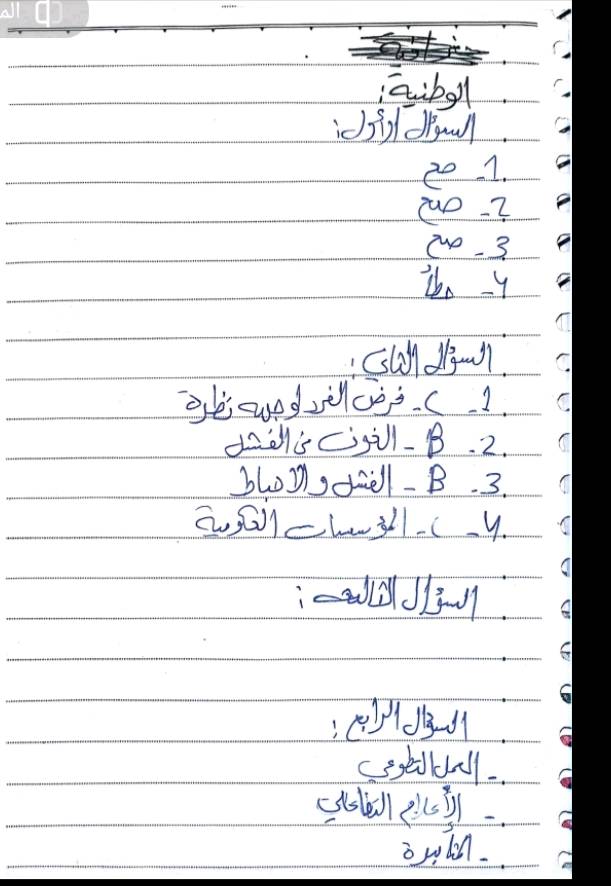 الوطنية:
السؤال الأول:
1- صح
2- صح
3- صح
4- خطأ
السؤال الثاني:
1- C- فرض الفرد لوجهه نظرة
2- B- الخوف من الفشل
3- B- الفشل والاحباط
4- C- المؤسسات الحكومية
السؤال الثالث:
السؤال الرابع:
- العمل التطوعي
- الأعلام التفاعلي
- المثابرة